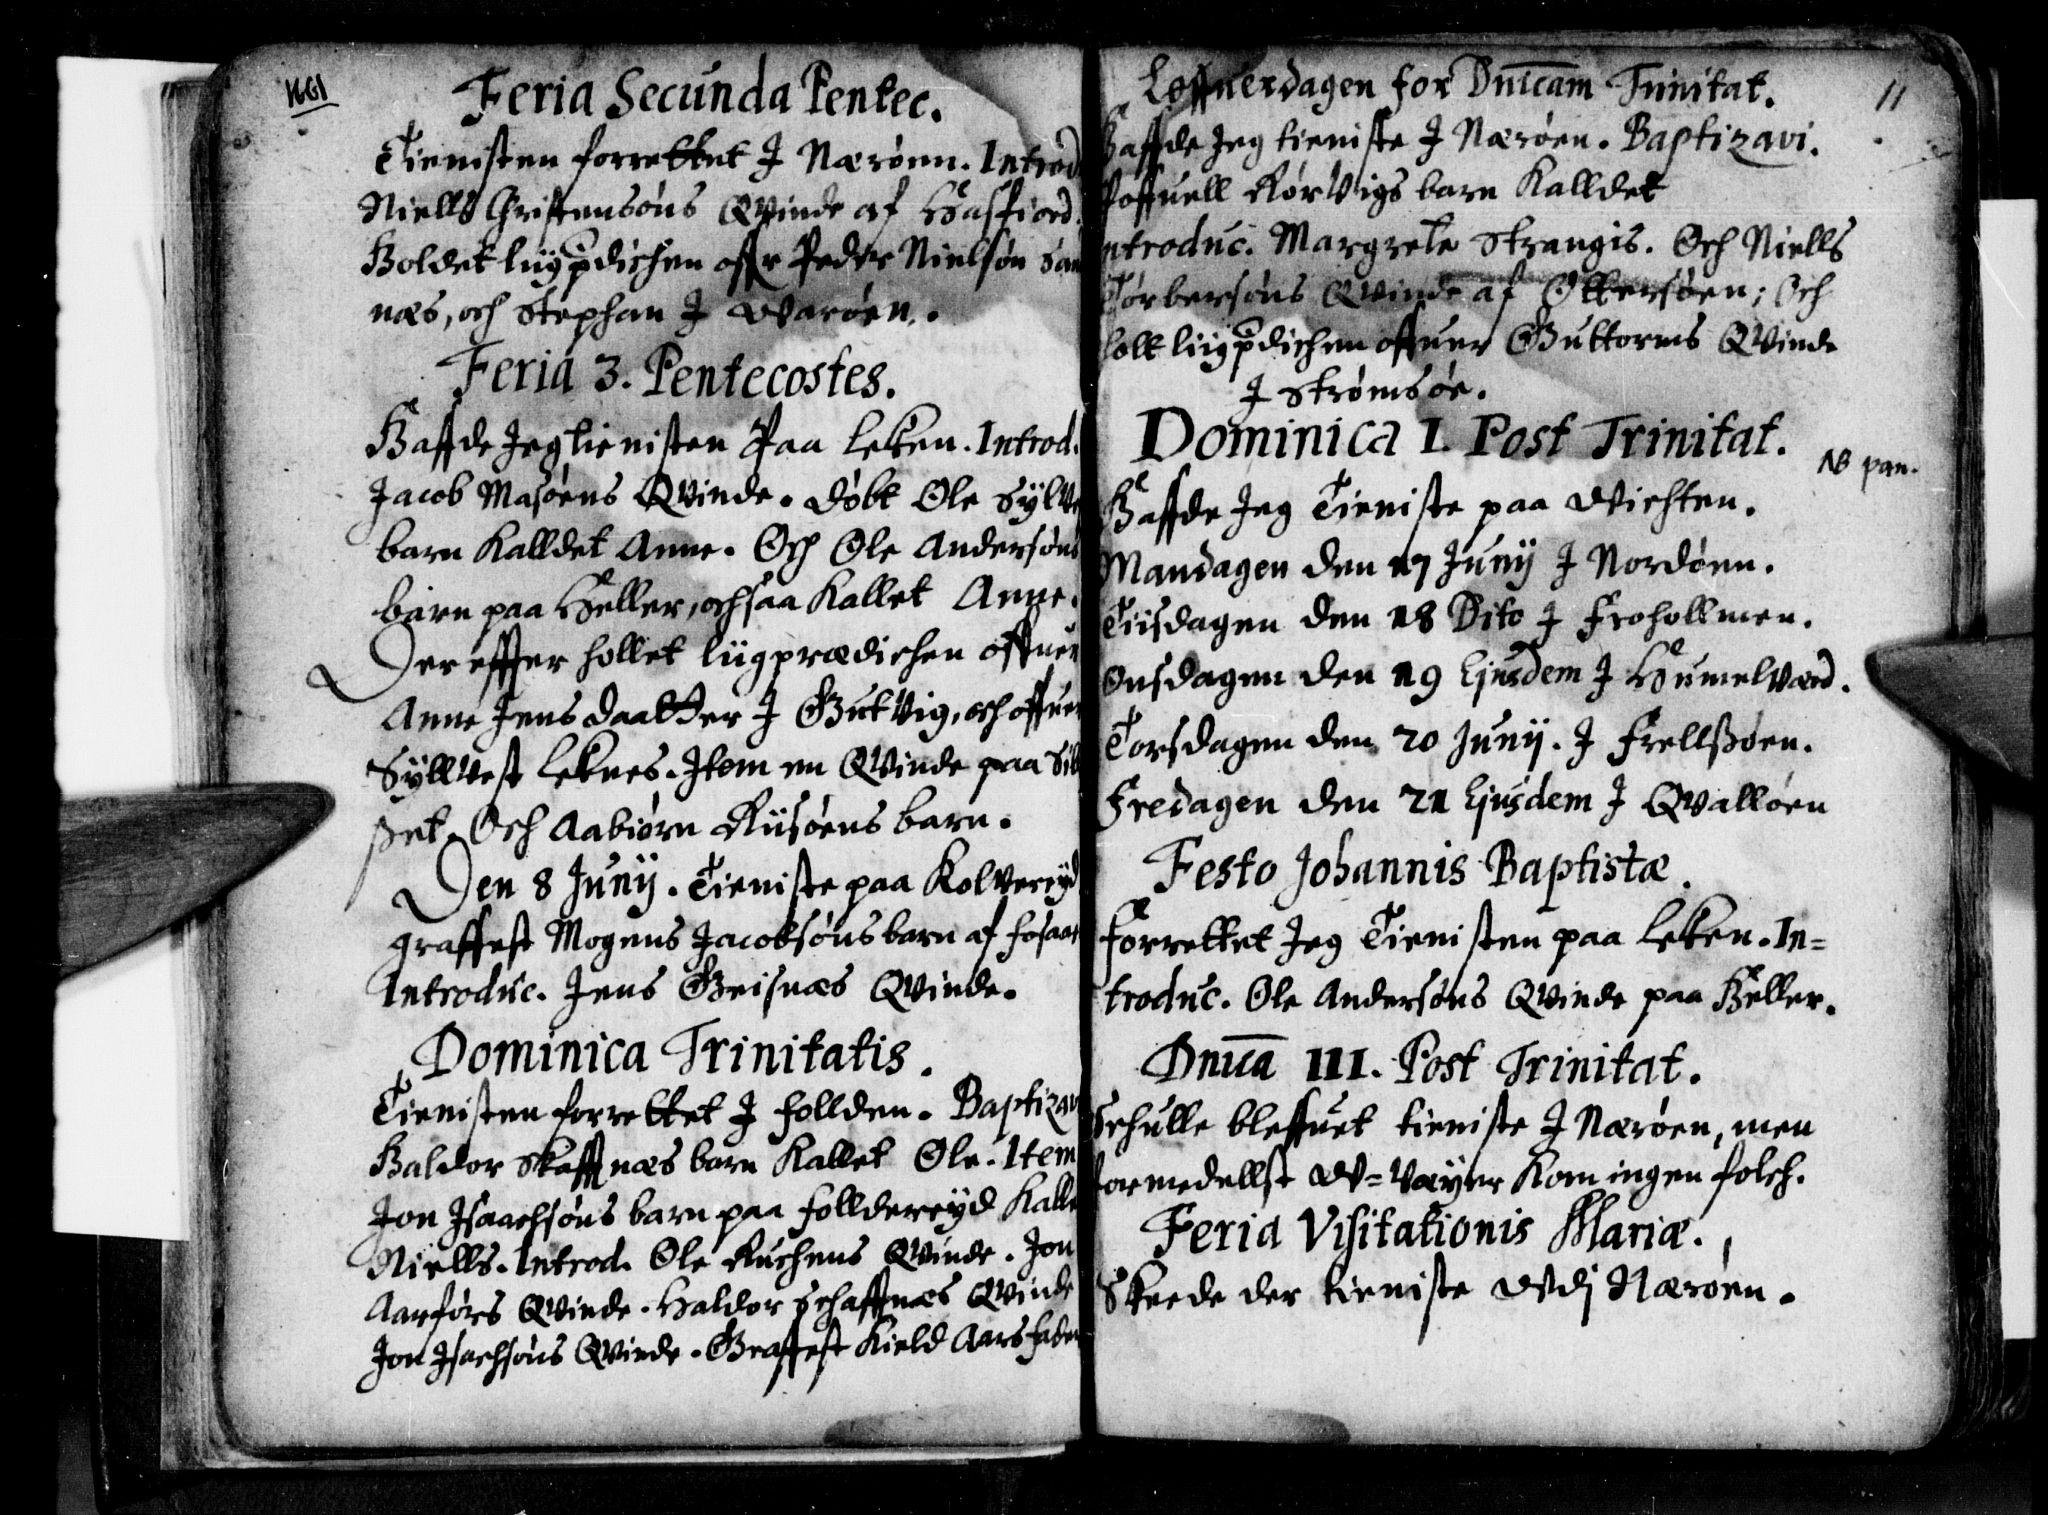 1661
Feria Secunda Pentec.
Tienisten forrettet I Nærøen. Introd
Niells Christensøns Qvinde af Hasfiord.
Holdet liigpdichen offr Peder Nielsøn San
næs, och Stephan I Warøen.
Feria 3. Pentecostes.
Haffde Jeg tienisten Paa Leken. Introd.
Jacob Masøens Qvinde. Døbt Ole Sylve
barn Kalldet Anne. Och Ole Andersøns
barn paa Heller, ochsaa Kallet Anne.
Der effter hollet liigprædichen offuer
Anne Jens daatter I Gutvig, och offuer
Syllvest Leknes. Item en Qvinde paa Sil
set. Och Aabiørn Riisøens barn.
Den 8 Junij. Tieniste paa Kolvereyd
graffest Mogens Jacobsøns barn af Fosaae
Introduc. Jens Geisnæs Qvinde.
Dominica Trinitatis.
Tienisten forrettet I Follden. Baptizav
Haldor Skaffnæs barn Kallet Ole. Item
Jon Isaachsøns barn paa Folldereyd Kalle
Niells. Introd. Ole Ruchens Qvinde. Jon
Aarførs Qvinde. Haldor Schaffnæs Qvinde
Jon Isachsøns Qvinde. Graffest Kield Aarsfader
11
Løffuerdagen for Dnicam Trinitat.
Haffde Jeg tieniste I Nærøen. Baptizavi.
Poffuell Rørvigs barn Kalldet
Introduc. Margrete Strangis. Och Niells
Torbersøns Qvinde af Ottersøen; Och
holt liigpdichen offuer Guttorms Qvinde
I Strømsøe.
Dominica I. Post Trinitat.
NB pan.
Haffde Jeg Tieniste paa Wichten.
Mandagen den 17 Junij I Nordøen.
Tiisdagen den 18 Dito I Frohollmen.
Onsdagen den 19 Ejusdem I Humelværd.
Torsdagen den 20 Junij. I Frellsøen.
Fredagen den 21 Ejusdem I Qvalløen
Festo Johannis Baptistæ.
Forrettet Jeg Tienisten paa Leken. In=
troduc. Ole Andersøns Qvinde paa Heller.
Dnica III. Post Trinitat.
Schulle bleffuet tieniste I Nærøen, men
formedellst W=væyer Kom ingen folch.
Feria Visitationis Mariæ.
Skeede der tieniste Wdj Nærøen.